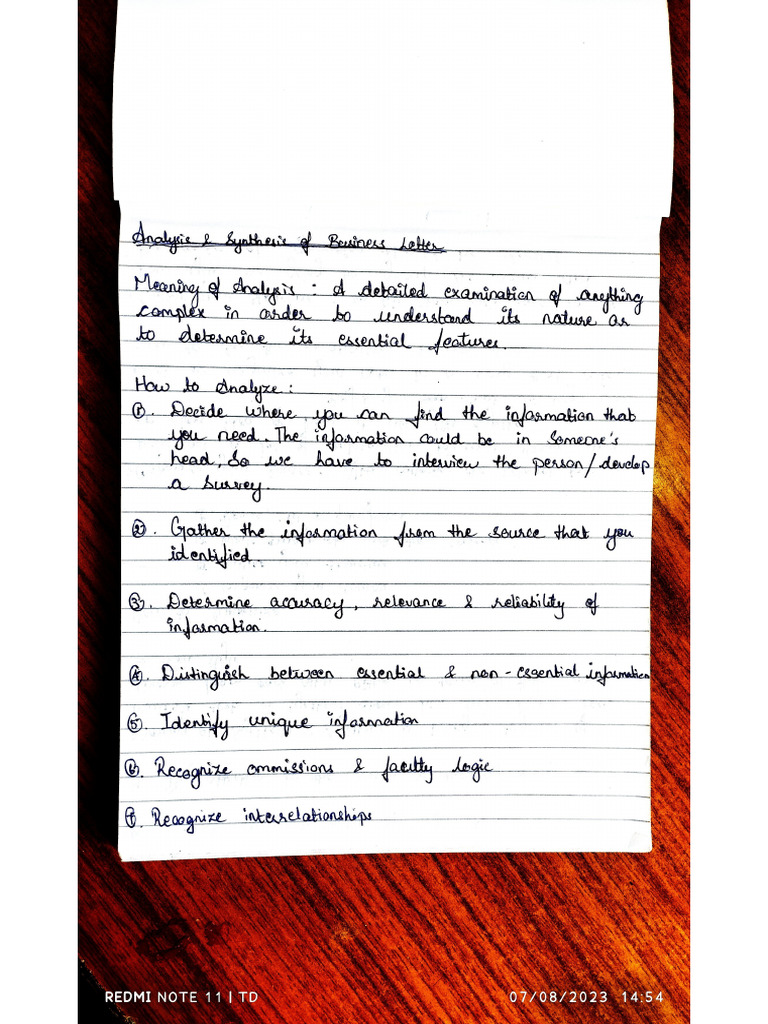 Analysis & Synthesis of Business Letter
Meaning of Analysis : A detailed examination of anything
complex in order to understand its nature or
to determine its essential features.
How to Analyze :
①. Decide where you can find the information that
you need. The information could be in someone's
head, So we have to interview the person/develop
a survey.
②. Gather the information from the source that you
identified.
③. Determine accuracy, relevance & reliability of
information.
④. Distinguish between essential & non-essential information
⑤. Identify unique information
⑥. Recognize ommissions & faculty logic
⑦. Recognize interrelationships
REDMI NOTE 11 | TD
07/08/2023 14:54